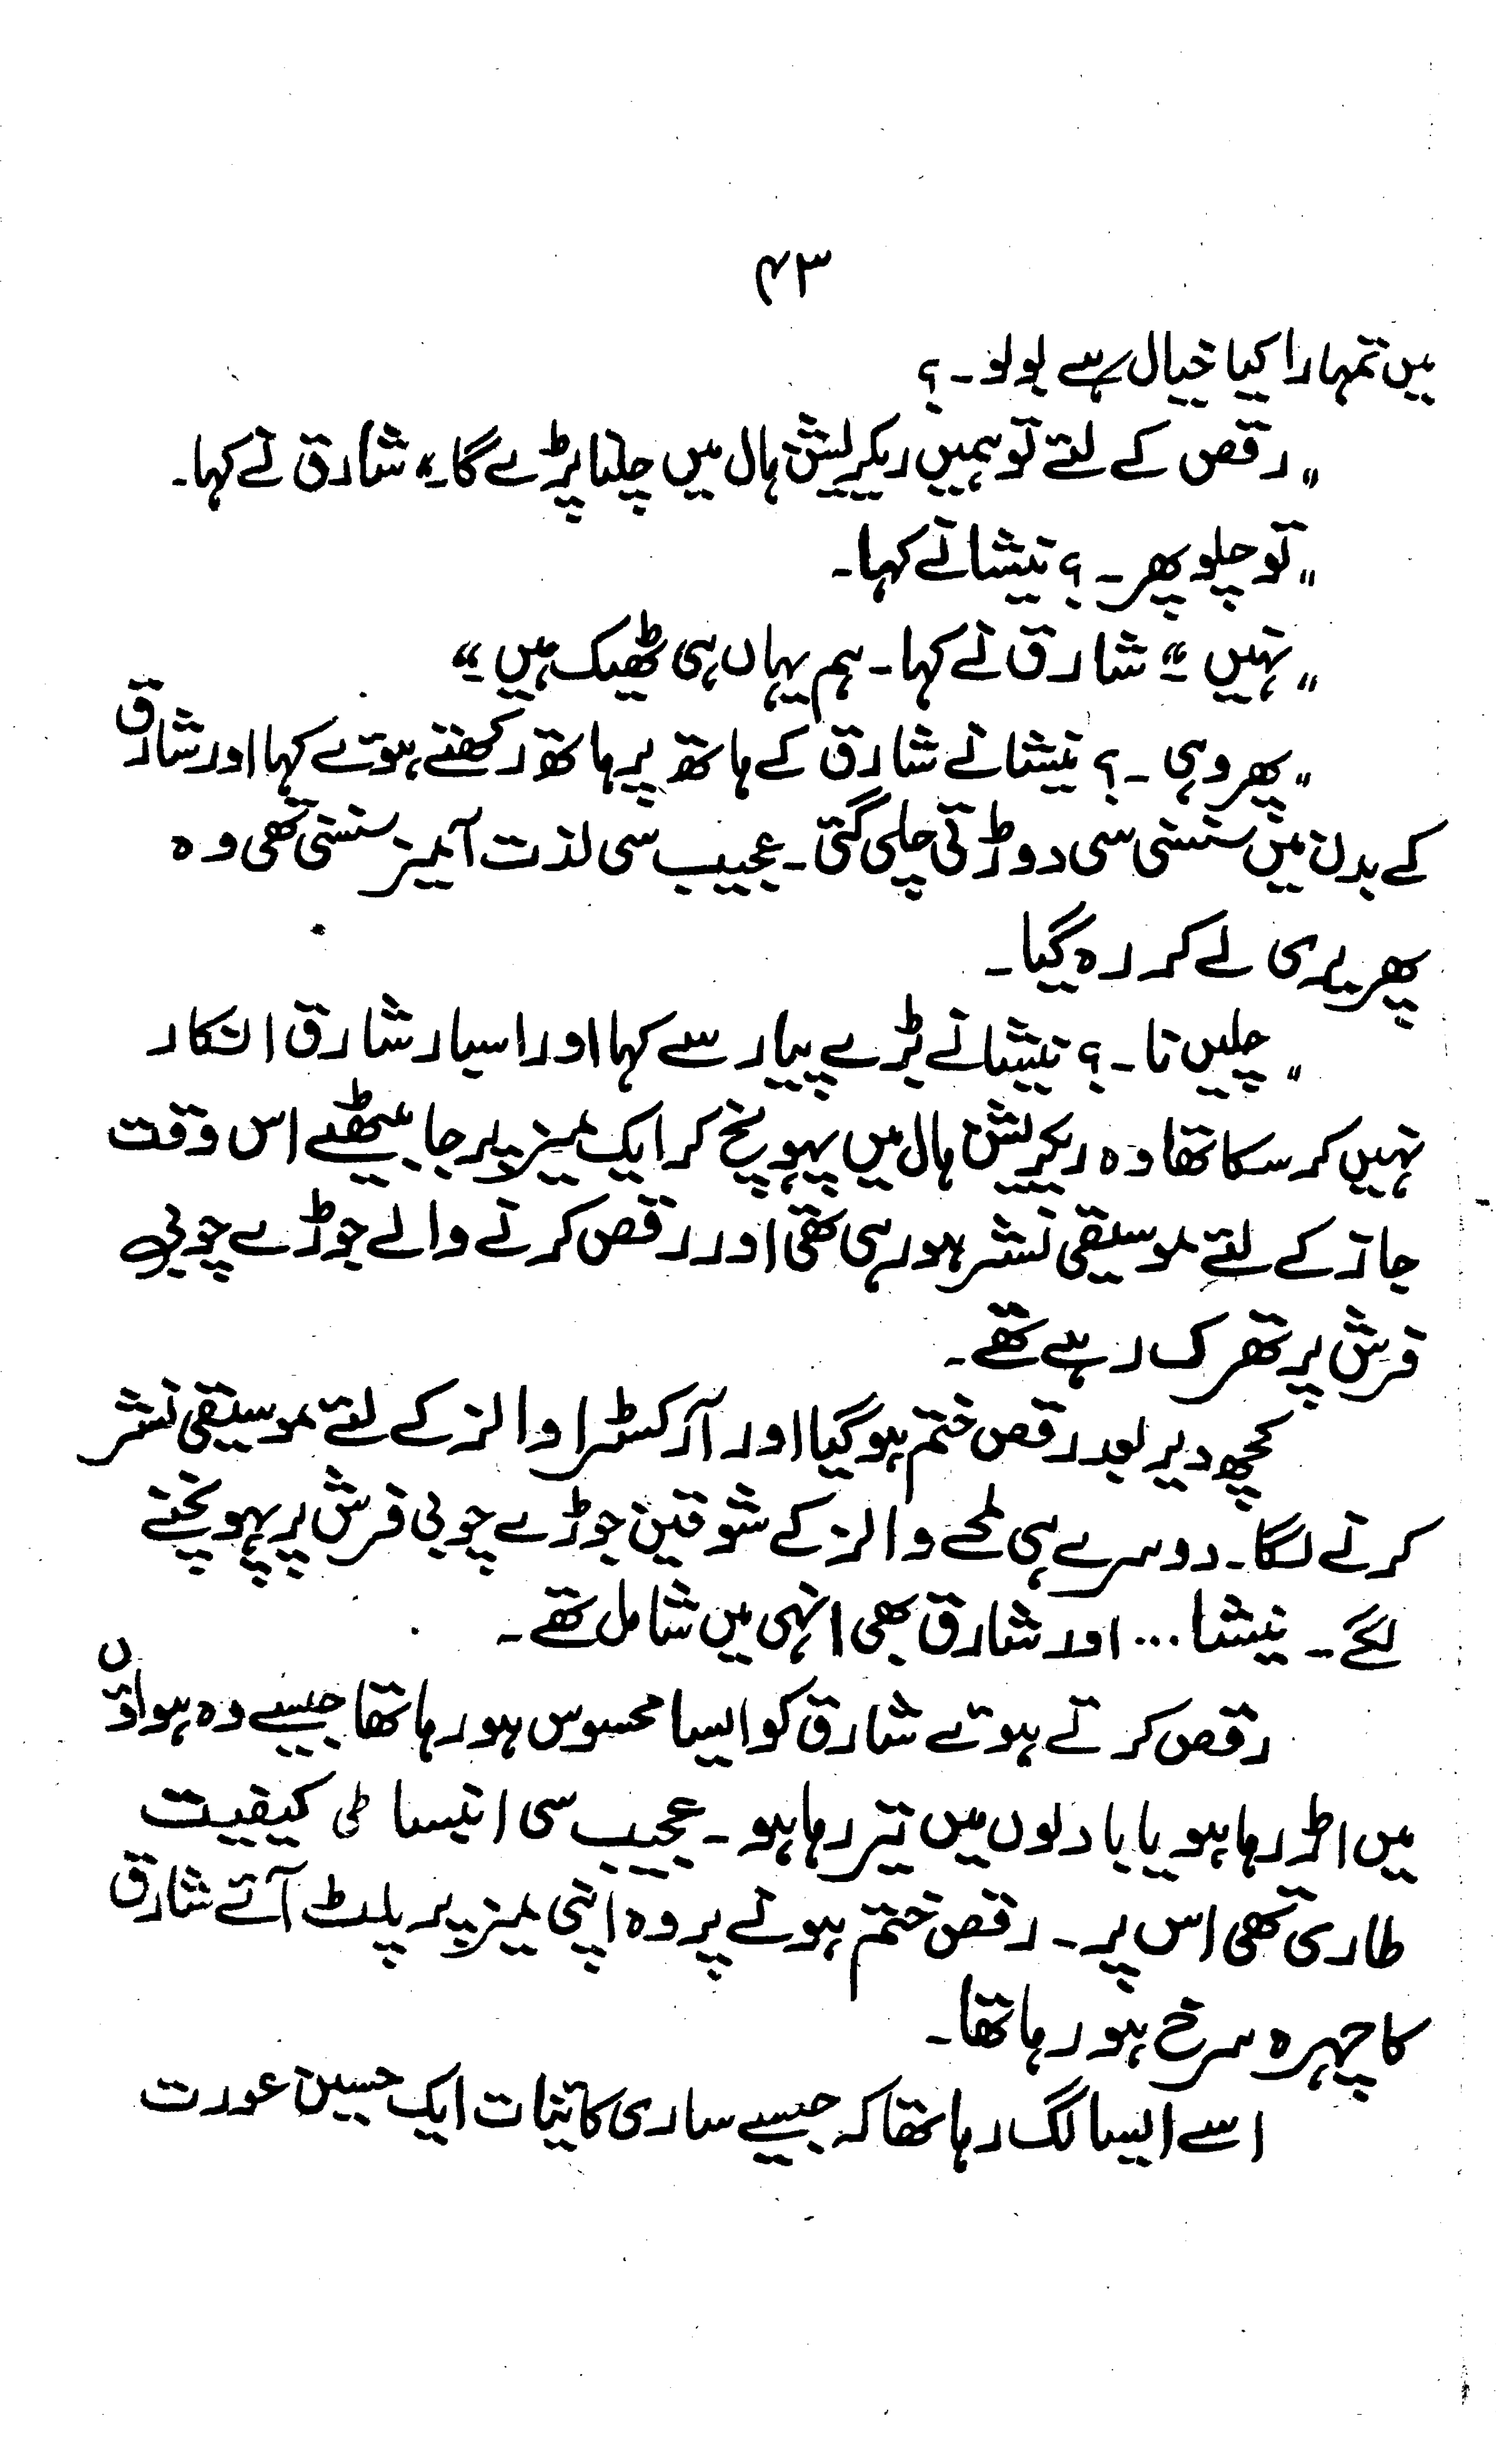 ۴۳
میں تمہارا کیا خیال ہے بولو ۔ ؟
„ رقص کے لئے تو ہمیں ریکریشن ہال میں چلنا پڑے گا ۔“ شارق نے کہا ۔
„ تو چلو پھر ۔ ؟ نیشا نے کہا ۔
„ نہیں ۔“ شارق نے کہا ۔ ہم یہاں ہی ٹھیک ہیں ۔“
„ پھر وہی ۔ ؟ نیشا نے شارق کے ہاتھ پر ہاتھ رکھتے ہوئے کہا اور شارق
کے بدن میں سنسنی سی دوڑتی چلی گئی ۔ عجیب سی لذت آمیز سنسنی تھی وہ
پھریری لے کر رہ گیا ۔
„ چلیں نا ۔ ؟ نیشا نے بڑے پیار سے کہا اور اسبار شارق انکار
نہیں کر سکا تھا وہ ریکریشن ہال میں پہونچ کر ایک میز پر جا بیٹھے اس وقت
جاز کے لئے موسیقی نشر ہو رہی تھی اور رقص کرنے والے جوڑے چوبی
فرش پر تھرک رہے تھے ۔
کچھ دیر بعد رقص ختم ہو گیا اور آرکسٹرا والز کے لئے موسیقی نشر
کرنے لگا ۔ دوسرے ہی لمحے والز کے شوقین جوڑے چوبی فرش پر پہونچنے
لگے ۔ نیشا ... اور شارق بھی انہی میں شامل تھے ۔
رقص کرتے ہوئے شارق کو ایسا محسوس ہو رہا تھا جیسے وہ ہواؤں
میں اڑ رہا ہو یا بادلوں میں تیر رہا ہو ۔ عجیب سی انبساطی کیفیت
طاری تھی اس پر ۔ رقص ختم ہونے پر وہ اپنی میز پر پلٹ آئے شارق
کا چہرہ سرخ ہو رہا تھا ۔
اسے ایسا لگ رہا تھا کہ جیسے ساری کائنات ایک حسین عورت